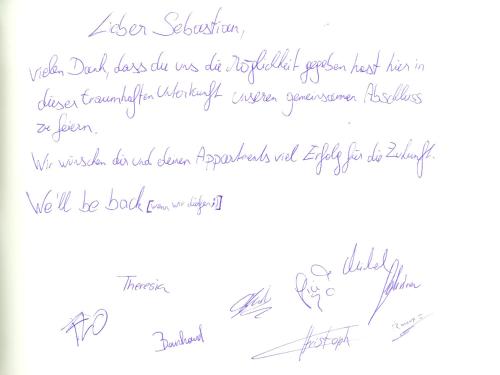 Lieber Sebastian,
vielen Dank, dass du uns die Möglichkeit gegeben hast hier in
dieser traumhaften Unterkunft unseren gemeinsamen Abschluss
zu feiern.
Wir wünschen dir und deinen Appartments viel Erfolg für die Zukunft.
We'll be back [wenn wir dürfen ;)]
Theresia
Michael
Bernhard
Christoph